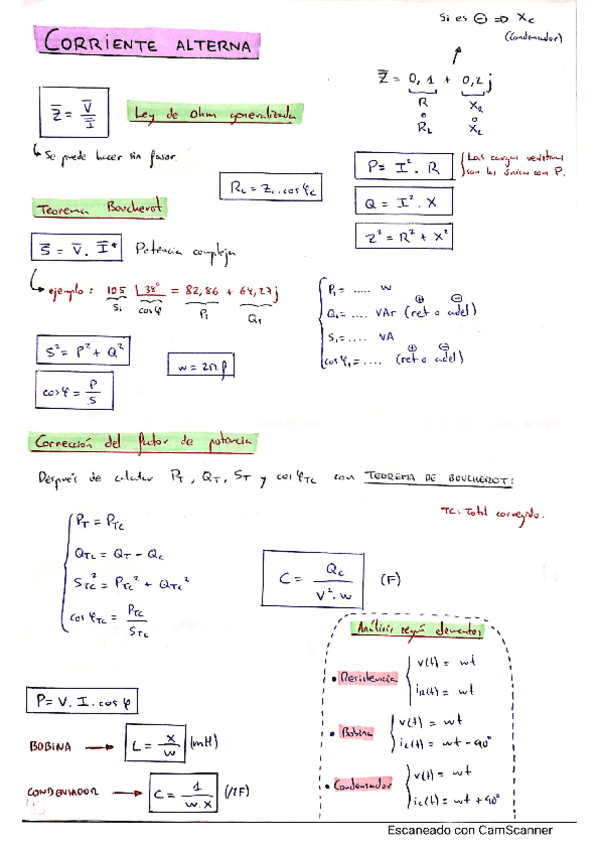 Si es ⊖ ⇒ Xc
(Condensador)
CORRIENTE ALTERNA
Z̄ = 0,1 + 0,2j
R XL
o o
RL XL
Z̄ = V̄ / Ī
Ley de Ohm generalizada
↳ Se puede hacer sin fasor.
P = I² · R
Las cargas resistivas
son las únicas con P.
Rc = Zc · cosφc
Q = I² · X
Z² = R² + X²
Teorema Boucherot
S̄ = V̄ · Ī* Potencia compleja
ejemplo: 105 |38° = 82,86 + 64,27j
S1 cosφ P1 Q1
P1 = .... W
⊕ ⊖
Q1 = .... VAr (ret o adel)
S1 = .... VA
⊕ ⊖
cosφ1 = .... (ret o adel)
S² = P² + Q²
w = 2π·f
cosφ = P / S
Corrección del factor de potencia
Después de calcular PT, QT, ST y cosφTC con TEOREMA DE BOUCHEROT:
TC: Total corregido.
PT = PTC
QTC = QT - QC
STC² = PTC² + QTC²
cosφTC = PTC / STC
C = QC / V²·w (F)
Análisis según elementos
• Resistencia
v(t) = wt
iR(t) = wt
P = V · I · cosφ
• Bobina
v(t) = wt
iL(t) = wt - 90°
BOBINA → L = X / w (mH)
• Condensador
v(t) = wt
ic(t) = wt + 90°
CONDENSADOR → C = 1 / w·X (μF)
Escaneado con CamScanner